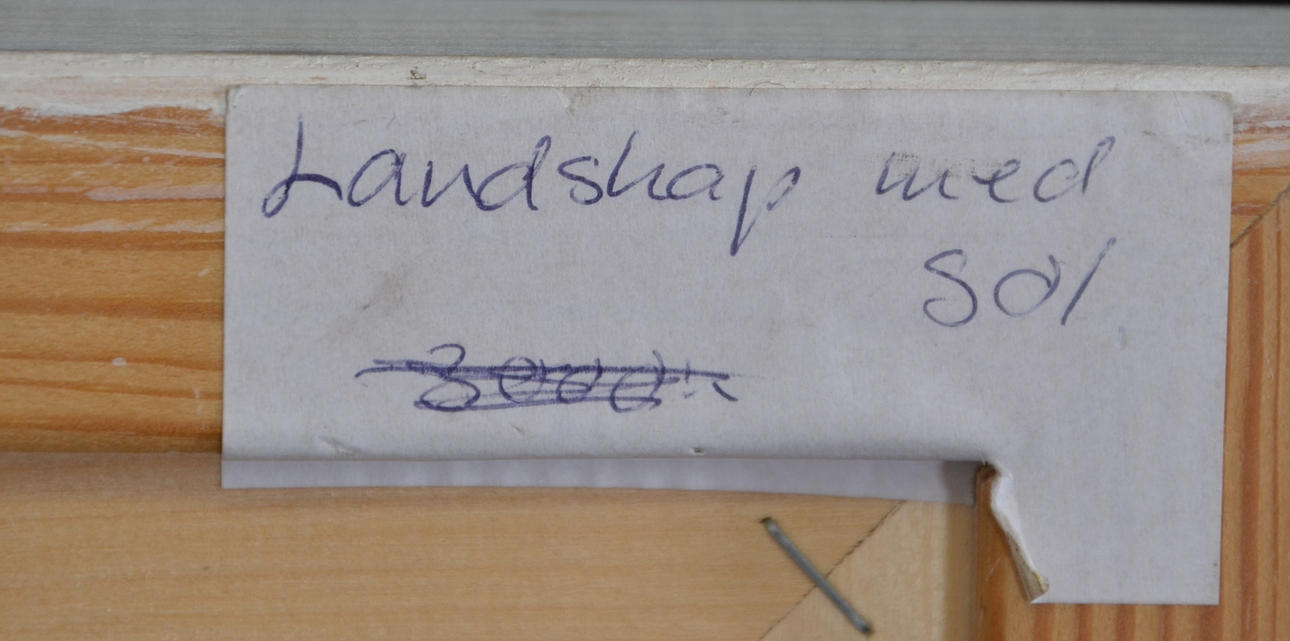 Landskap med
Sol
3000:-